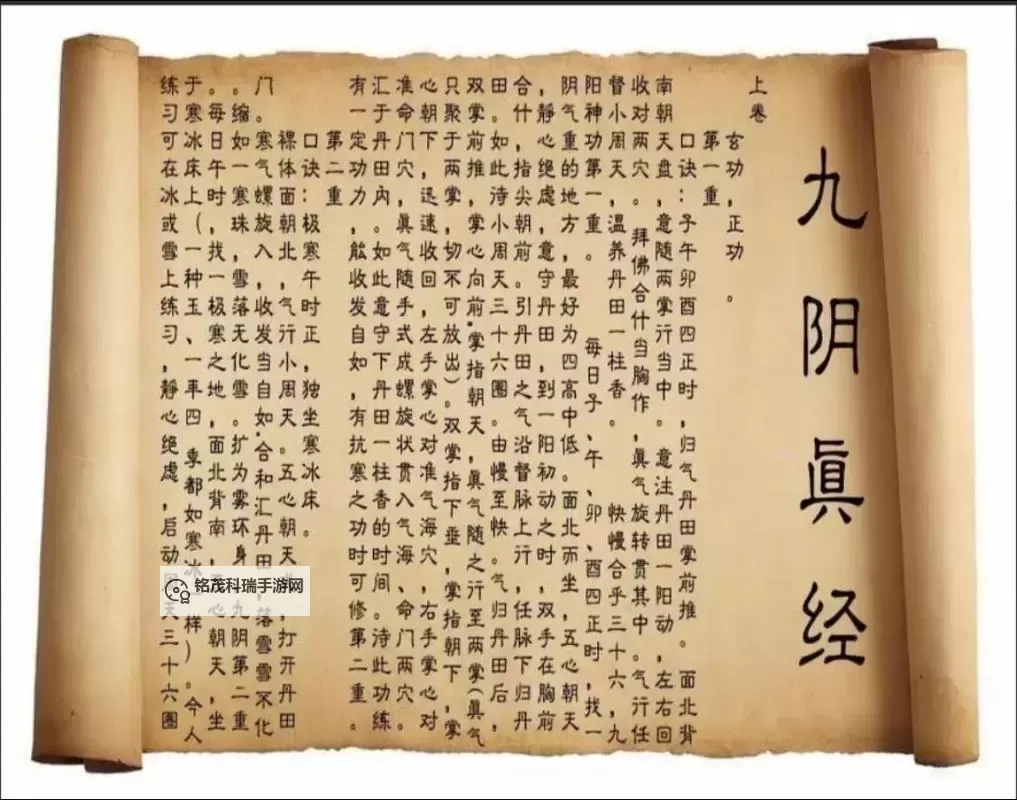 九阴眞经
上卷
玄功,正功。
第一重
口诀:子午卯酉四正时,归气丹田掌前推。面北背
南朝天盘,意随两掌行当中。意注丹田一阳动,左右回
收对两穴。拜佛合什当胸作,眞气旋转贯其中。气行任
督小周天,温养丹田一柱香。快慢合乎三十六,九
阳神功第一重。每日子、午、卯、酉四正时,找一
阴气重的地方,最好为四高中低。面北而坐,五心朝天
,静心绝虑,意守丹田,到一阳初动之时,双手在胸前
合什,指尖朝前。引丹田之气沿督脉上行,任脉下归丹
田。如此待小周天三十六圈。由慢至快。气归丹田后,
双掌前推,掌心向前,掌指朝天,眞气随之行至两掌(眞气
只聚于两掌,切不可放出)双掌指下垂,掌指朝下,掌
心朝下,迅速收回,左手掌心对准气海穴,右手掌心对
准命门穴,眞气随手式成螺旋状贯入气海、命门两穴。
汇于丹田内。如此意守下丹田一柱香的时间。待此功练
有一定功力,能收发自如,有抗寒之功时可修第二重。
第二重
口诀:极寒午时正,独坐寒冰床。
裸体面朝北,气行小周天。五心朝天,打开丹田
门。寒气螺旋入,收发当自如.合和汇丹田,落雪雪不化
。缩如一寒珠,雪落无化雪。扩为雾环身,九阴第二重
。每日午时,找一极寒之地,面北背南,心朝天,坐
于寒冰床上(一种玉、一年四季都如寒冰样)。今人
练习可在冰或雪上练习,静心绝虑,启动天三十六圈
铭茂科瑞手游网